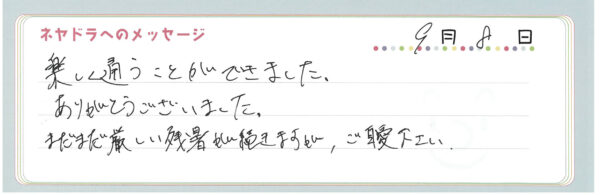 ネヤドラへのメッセージ
9月8日
楽しく通うことができました。
ありがとうございました。
まだまだ厳しい残暑が続きますが、ご自愛下さい。